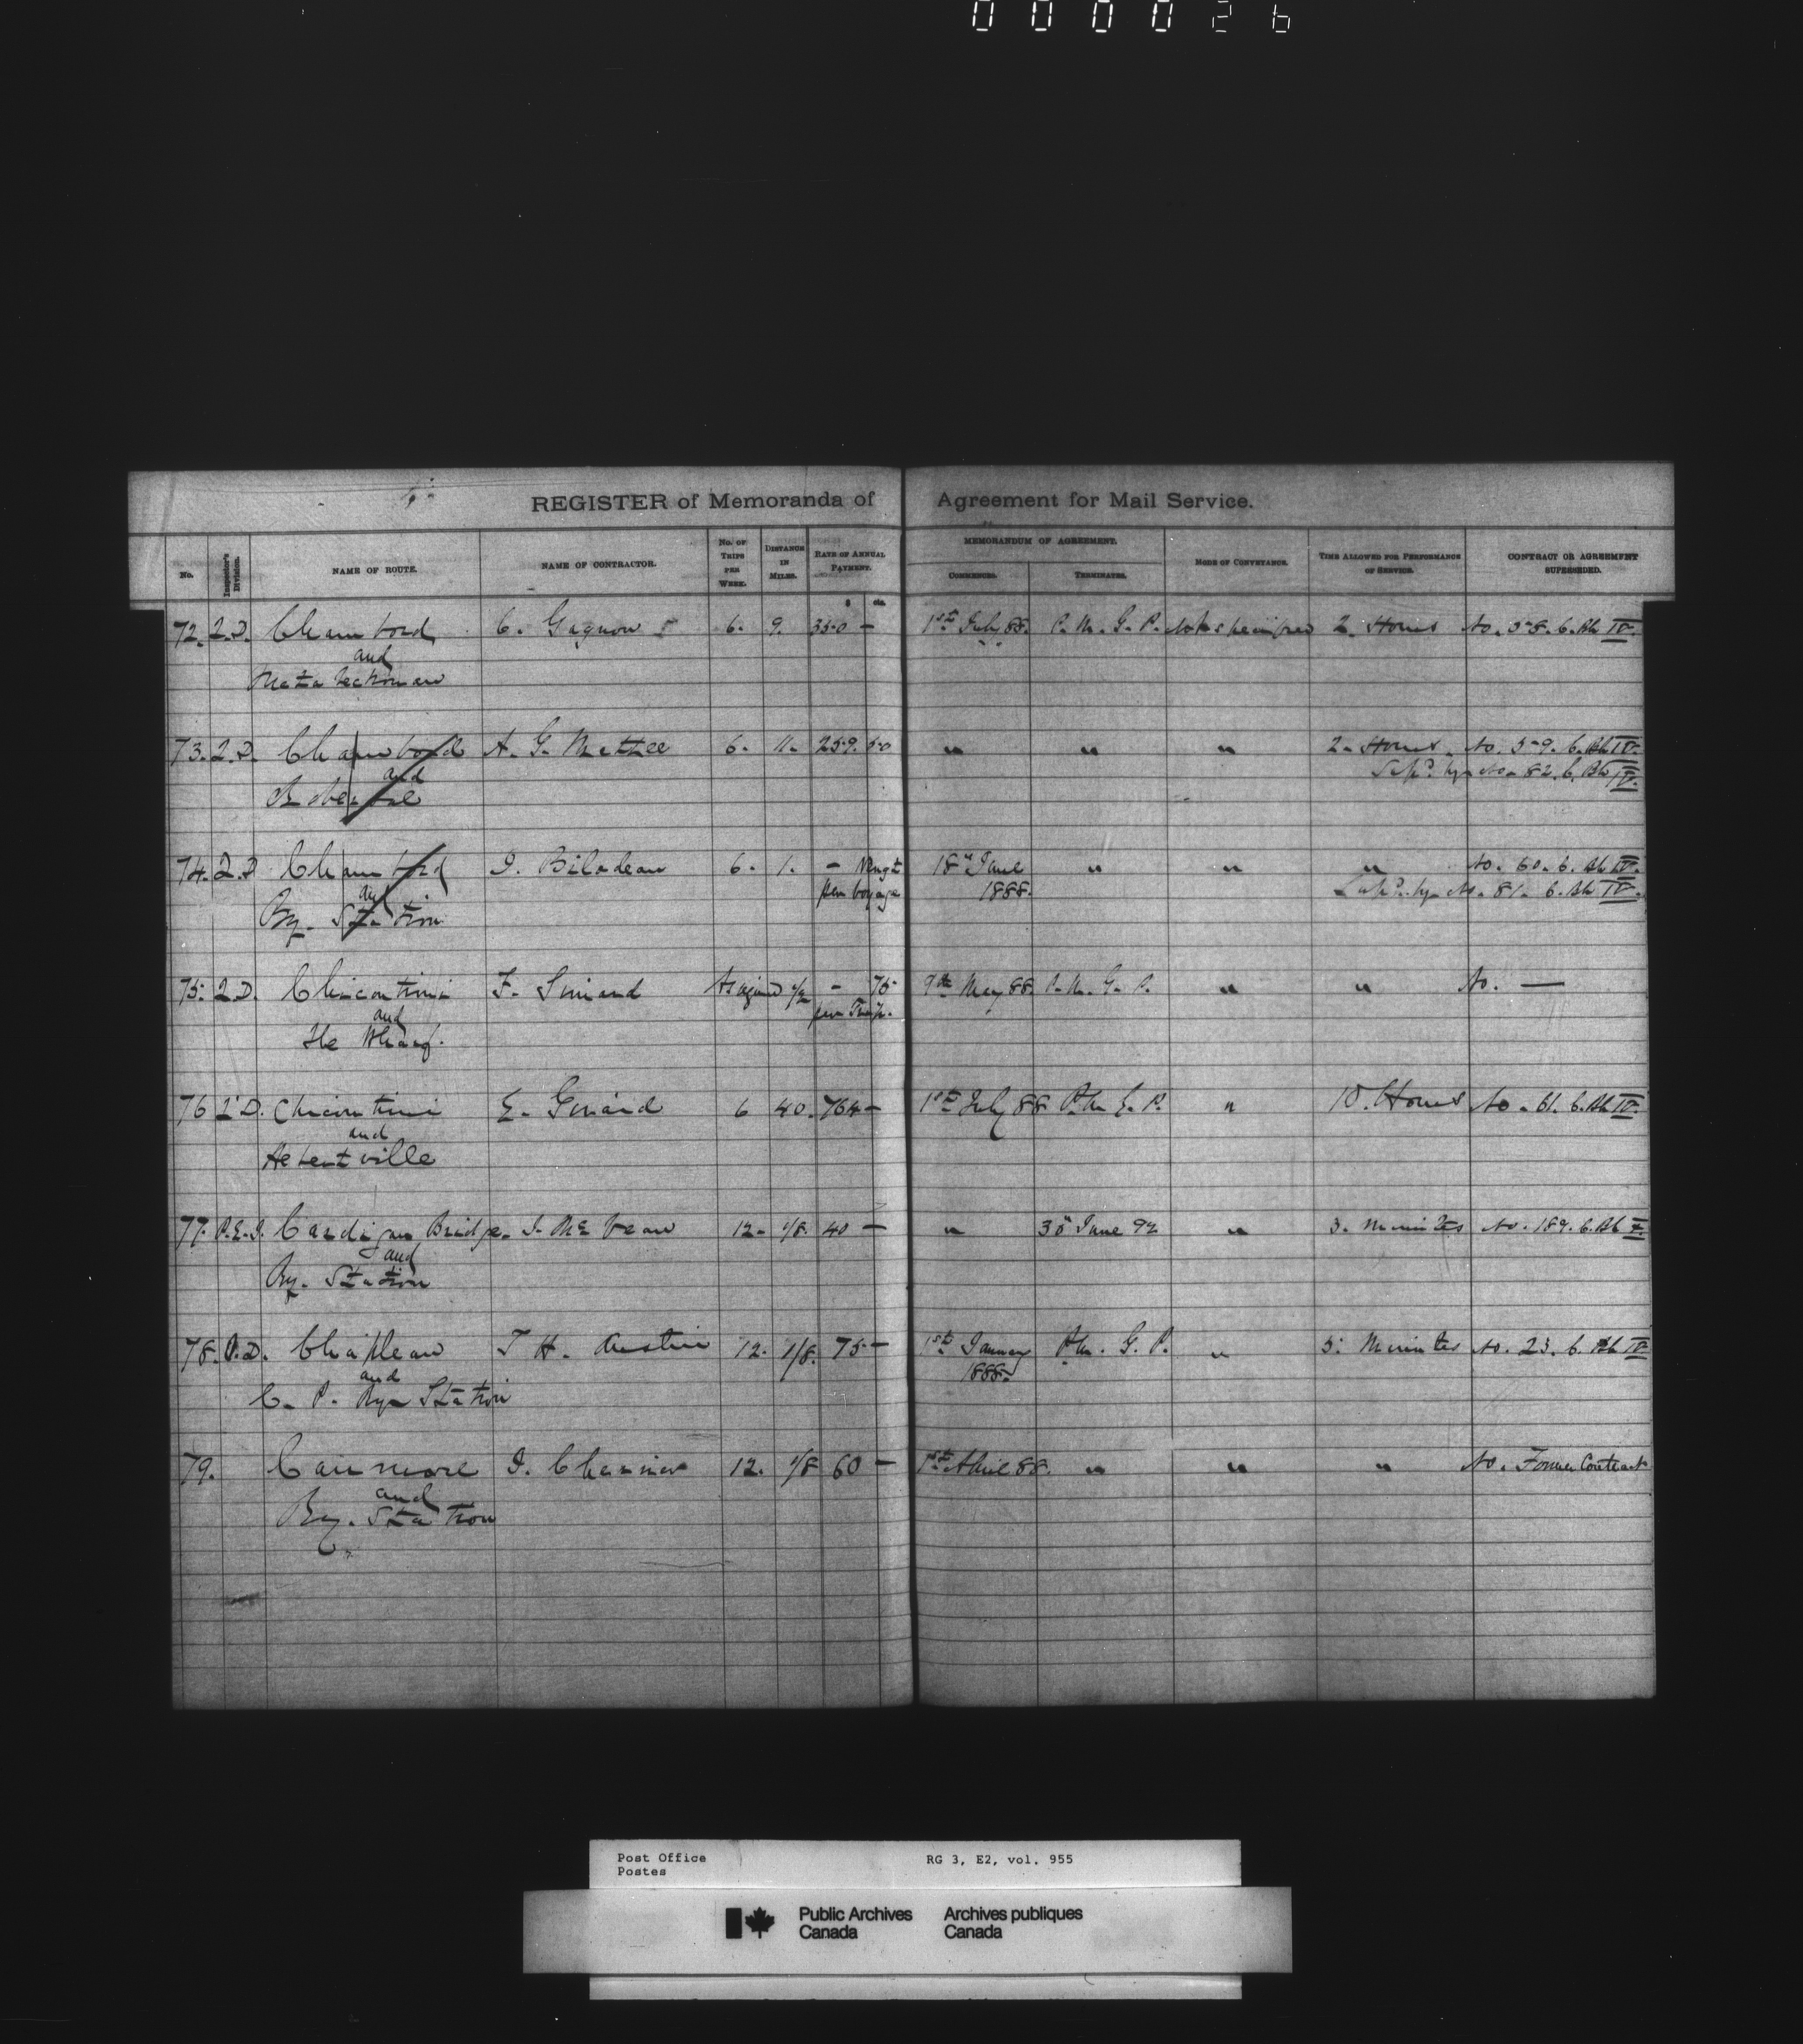 000026
REGISTER of Memoranda of Agreement for Mail Service.
No. Inspector's Division. NAME OF ROUTE. NAME OF CONTRACTOR. No. OF TRIPS PER WEEK. DISTANCE IN MILES. RATE OF ANNUAL PAYMENT. MEMORANDUM OF AGREEMENT. COMMENCES. TERMINATES. MODE OF CONVEYANCE. TIME ALLOWED FOR PERFORMANCE OF SERVICE. CONTRACT OR AGREEMENT SUPERSEDED.
$ cts.
72. 2.D. Chambord C. Gagnon 6. 9. 350 — 1st July 88. P.M.G.P. Not specified 2 Hours No. 58. C. Bk IV.
and
Metabechouan
73. 2.D. Chambord A. G. 6. 11. 259. 50 " " " 2 Hours. No. 59. C. Bk IV.
and Sup'd. by No. 82. C. Bk IV.
Roberval
74. 2.D Chambord J. Bilodeau 6. 1. — 18th June " " " No. 60. C. Bk IV.
and per voyage 1888. Sup'd. by No. 81. C. Bk IV.
Ry. Station
75. 2.D. Chicoutimi F. Simard As required 1/2 — 75 9th May 88 P.M.G.P. " " No. —
and per Trip.
the Wharf.
76 2.D. Chicoutimi E. Girard 6 40. 764 — 1st July 88 P.M.G.P. " 10. Hours No. 61. C. Bk IV.
and
Hebertville
77. P.E.I. Cardigan Bridge. J. McVean 12. 1/8. 40 — " 30th June 92 " 3. Minutes No. 189. C. Bk
and
Ry. Station
78. Chapleau T H. Austin 12. 1/8. 75 — 1st January P.M.G.P. " 5. Minutes No. 23. C. Bk IV
and 1888.
C. P. Ry. Station
79. Canmore J. 12. 1/8 60 — 1st April 88. " " " No. Former Contract
and
Ry. Station
Post Office RG 3, E2, vol. 955
Postes
Public Archives Archives publiques
Canada Canada